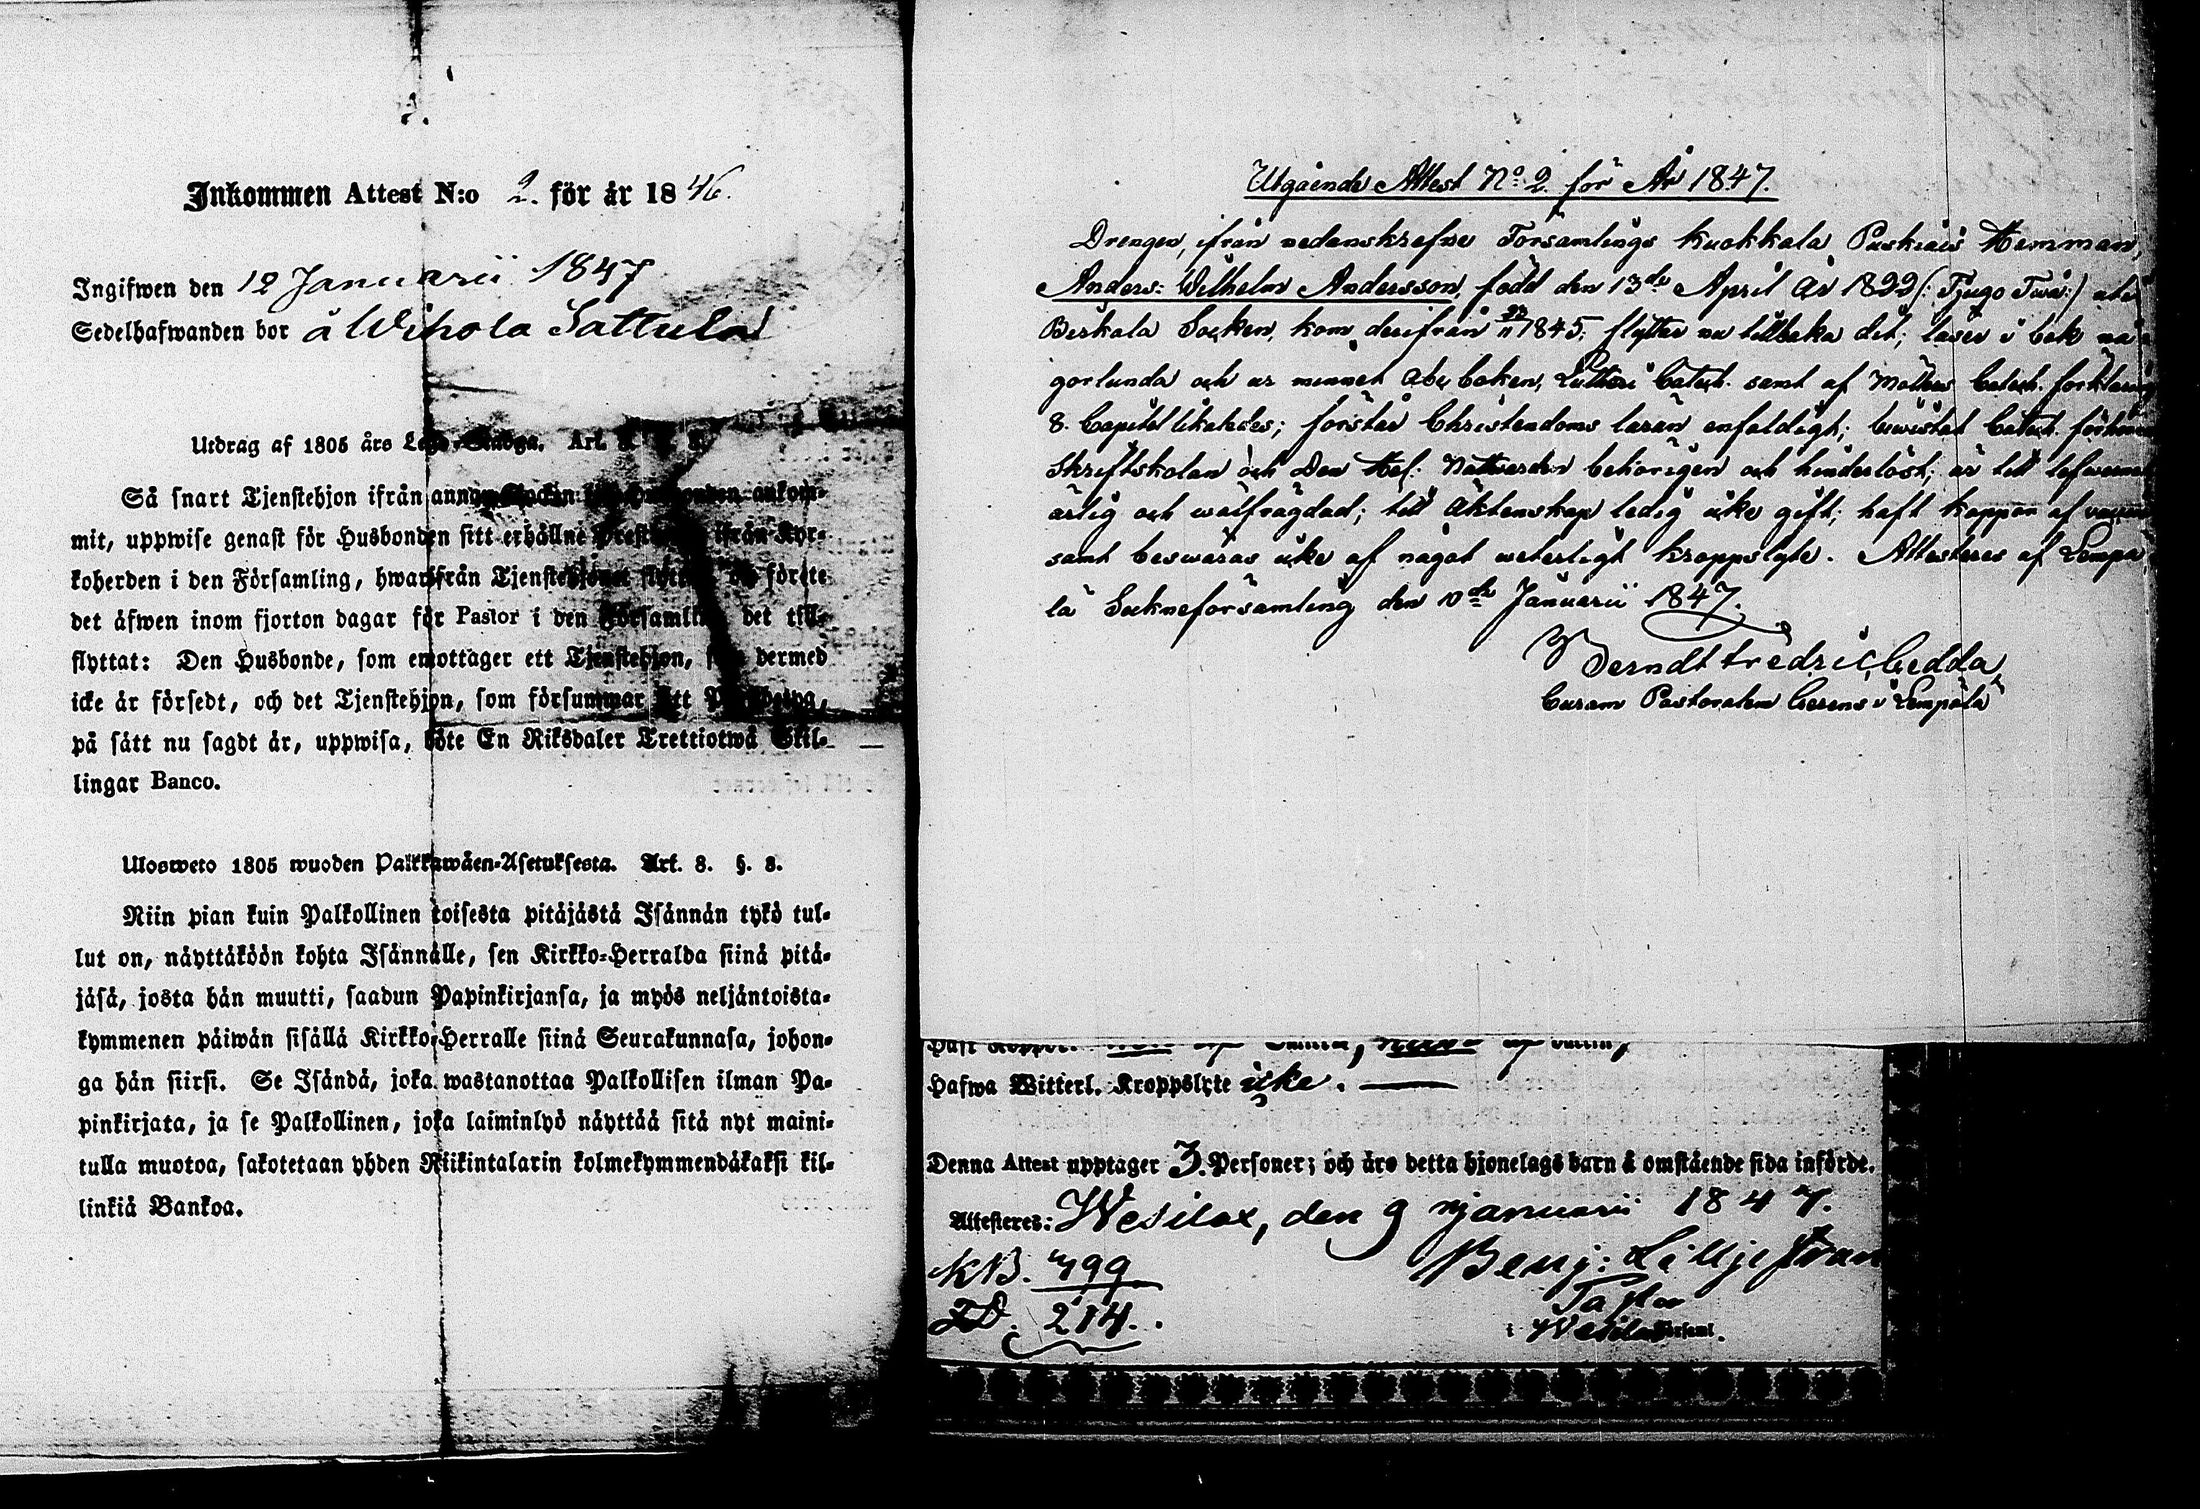 Inkommen Attest N:o 2. för år 1846.
Ingifwen den 12 Januarii 1847
Sedelhafwanden bor å Wihola Sattula
Utdrag af 1805 års Lego-Stadga. Art.
Så snart Tjenstehjon ifrån annan Socken ankom-
mit, uppwise genast för Husbonden sitt erhållne ifrån Kyr-
koherden i den Församling, hwarifrån Tjenstehjonet förete
det äfwen inom fjorton dagar för Pastor i den Församling det till-
flyttat: Den Husbonde, som emottager ett Tjenstehjon, dermed
icke är försedt, och det Tjenstehjon, som försummar
på sätt nu sagdt är, uppwisa, böte En Riksdaler Trettiotwå Skil-
lingar Banco.
Ulosweto 1805 wuoden Palkkawäen-Asetuksesta. Art. 8. §. 8.
Niin pian kuin Palkollinen toisesta pitäjästä Isännän tykö tul-
lut on, näyttäköön kohta Isännälle, sen Kirkko-Herralda siinä pitä-
jäsä, josta hän muutti, saadun Papinkirjansa, ja myös neljäntoista-
kymmenen päiwän sisällä Kirkko-Herralle siinä Seurakunnasa, johon-
ga hän siirsi. Se Isändä, joka wastanottaa Palkollisen ilman Pa-
pinkirjata, ja se Palkollinen, joka laiminlyö näyttää sitä nyt maini-
tulla muotoa, sakotetaan yhden Riikintalarin kolmekymmendäkaksi kil-
linkiä Bankoa.
Utgående Attest No. 2 för År 1847.
Drengen, ifrån nedanskrefne Församlings Kuokkala Hemman,
Anders Wilhelm Andersson, född den 13de April År 1822 (: Tjugo Två :) uti
Birkala Socken, kom derifrån 1845, flyttar nu tillbaka dit; läser i bok nå-
gorlunda och ur minnet Abc boken, Lutheri Catech. samt af Möllers Catech. förklaring
8. Capitel likaledes; förstår Christendoms läran enfaldigt; bewistat Catech. förhören
Skriftskolan och Den Hel. Nattvarden behörigen och hinderlöst; är till lefwernet
ärlig och wälfrägdad; till Äktenskap ledig icke gift; haft koppor af
samt beswäras icke af något weterligt kroppslyte. Attesteras af Lempä-
lä Sockneförsamling den 10de Januarii 1847.
Berndt Fredric Cedda
Curam Pastoralem Gerens i Lempälä
Hafwa Witterl. Kroppslyte icke.
Denna Attest upptager 3. Personer; och äro detta hjonelags barn å omstående sida införde.
Attesteres: Wesilax, den 9 Januarii 1847.
KB. 799
214.
Benj: Lilljestran
Pastor
i Wesilax Församl.